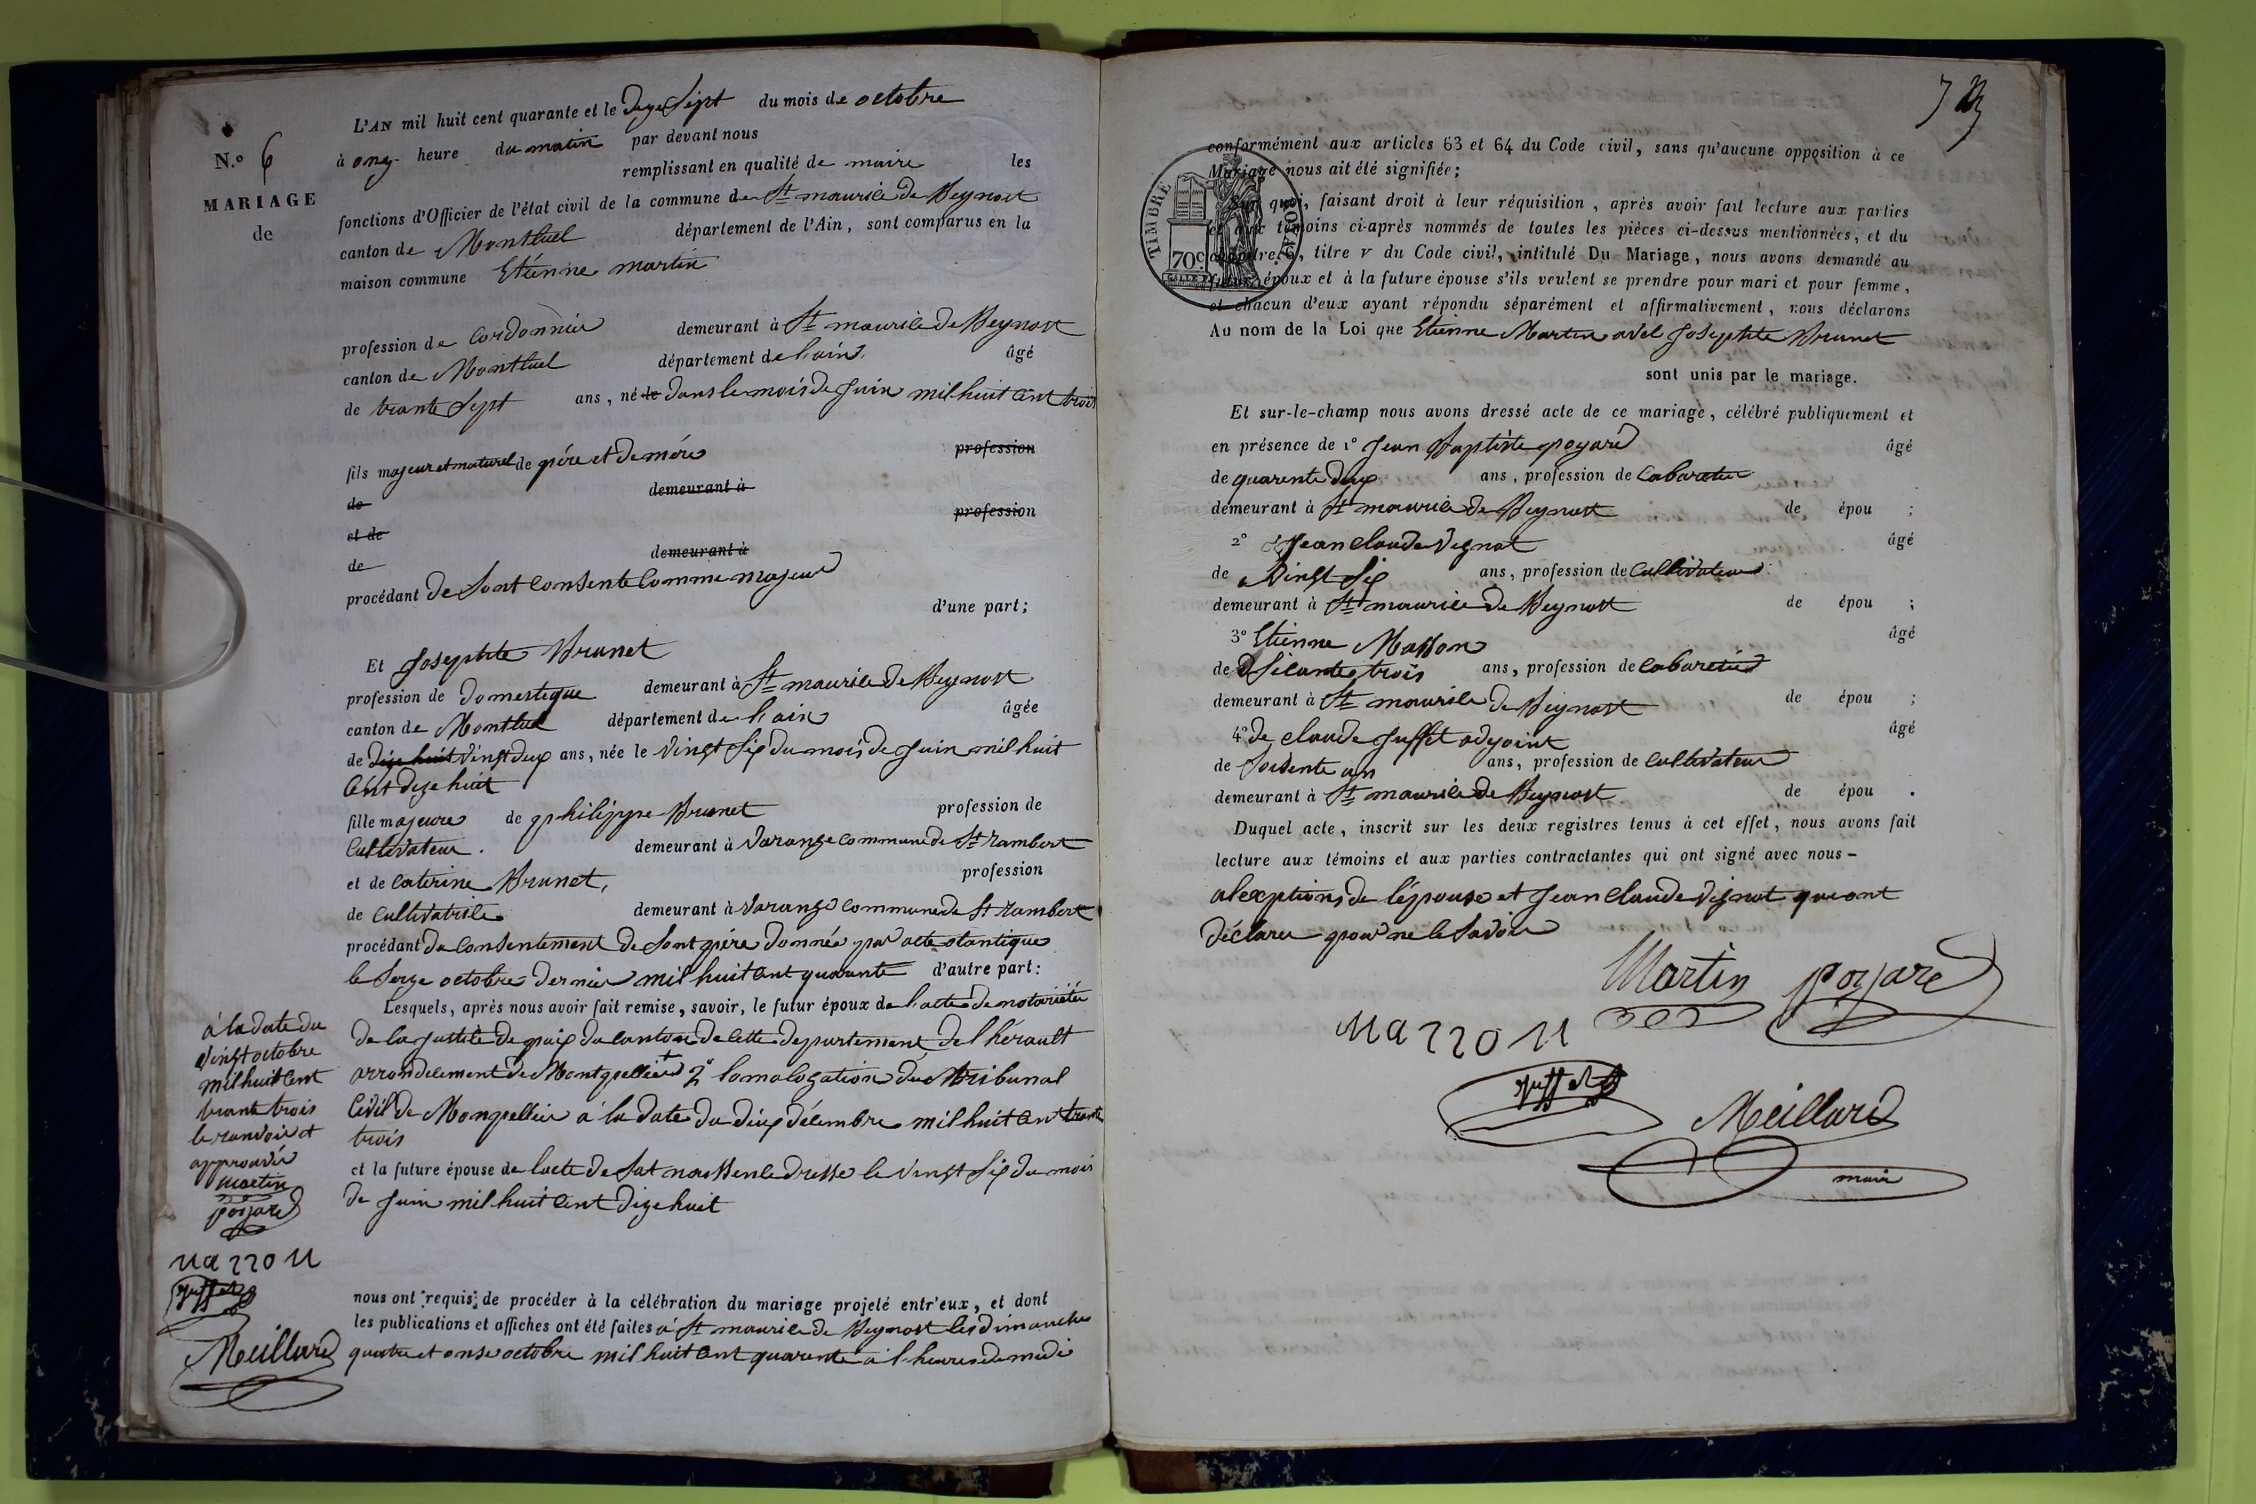 N.º 6
MARIAGE
de
L'AN mil huit cent quarante et le dizesept du mois de octobre
à onz heure du matin par devant nous
remplissant en qualité de maire les
fonctions d'Officier de l'état civil de la commune de St maurice de Beynost
canton de Montluel département de l'Ain, sont comparus en la
maison commune Etienne martin
profession de cordonnier demeurant à St maurice de Beynost
canton de Montluel département de lain âgé
de trante sept ans, né le dans le mois de juin mil huit cent trois
fils majeur et naturel de père et de mère profession
de demeurant à
et de profession
de demeurant à
procédant de sont consente comme majeur
d'une part;
Et Josephte Brunet
profession de domestique demeurant à St maurice de Beynost
canton de Montluel département de lain âgée
de dize huit vingt deux ans, née le vingt six du mois de juin mil huit
cent dize huit
fille majeure de philippe Brunet profession de
cultivateur. demeurant à Varange commune de St rambert
et de caterine Brunet, profession
de cultivatrice demeurant à Varange commune de St rambert
procédant du consentement de sont père donnée par acte otantique
le seize octobre dernier mil huit cent quarante d'autre part:
Lesquels, après nous avoir fait remise, savoir, le futur époux de lacte de notoriétée
de la justice de paix du canton de cette departement de l hérault
arrondicement de Montpellier + 2º lomologation du tribunal
Civil de Monpellier a la date du dix décembre mil huit cent trante
trois
et la future épouse de lacte de sat naissence dresse le vingt six du mois
de juin mil huit cent dize huit
à la date du
vingt octobre
mil huit cent
trante trois
le ranvoir et
approuvé
martin
poyard
Mazzon
Juffet
Meillard
nous ont requis de procéder à la célébration du mariage projeté entr'eux, et dont
les publications et affiches ont été faites a St maurice de Beynost les dimanches
quatre et onse octobre mil huit cent quarente a l heure de midi
7
conformément aux articles 63 et 64 du Code civil, sans qu'aucune opposition à ce
Mariage nous ait été signifiée;
Sur quoi, faisant droit à leur réquisition, après avoir fait lecture aux parties
et aux témoins ci-après nommés de toutes les pièces ci-dessus mentionnées, et du
chapitre 6, titre v du Code civil, intitulé Du Mariage, nous avons demandé au
futur époux et à la future épouse s'ils veulent se prendre pour mari et pour femme,
et chacun d'eux ayant répondu séparément et affirmativement, nous déclarons
Au nom de la Loi que Etienne Martin avec Josephte Brunet
sont unis par le mariage.
TIMBRE ROYAL
70c
Et sur-le-champ nous avons dressé acte de ce mariage, célébré publiquement et
en présence de 1º Jean Baptiste poyard âgé
de quarente deux ans, profession de Cabaretier
demeurant à St maurice de Beynost de épou ;
2º Jean claude Vignat âgé
de Vingt six ans, profession de Cultivateur
demeurant à St maurice de Beynost de épou ;
3º Etienne Masson âgé
de soicante trois ans, profession de Cabaretier
demeurant à St maurice de Beynost de épou ;
4º de claude Juffet adjoint âgé
de soisente un ans, profession de Cultivateur
demeurant à St maurice de Beynost de épou .
Duquel acte, inscrit sur les deux registres tenus à cet effet, nous avons fait
lecture aux témoins et aux parties contractantes qui ont signé avec nous –
alexptions de lépouse et Jean claude Vignat qui ont
déclarer pour ne le savoir
Martin poyard
Mazzon
Juffet
Meillard
maire